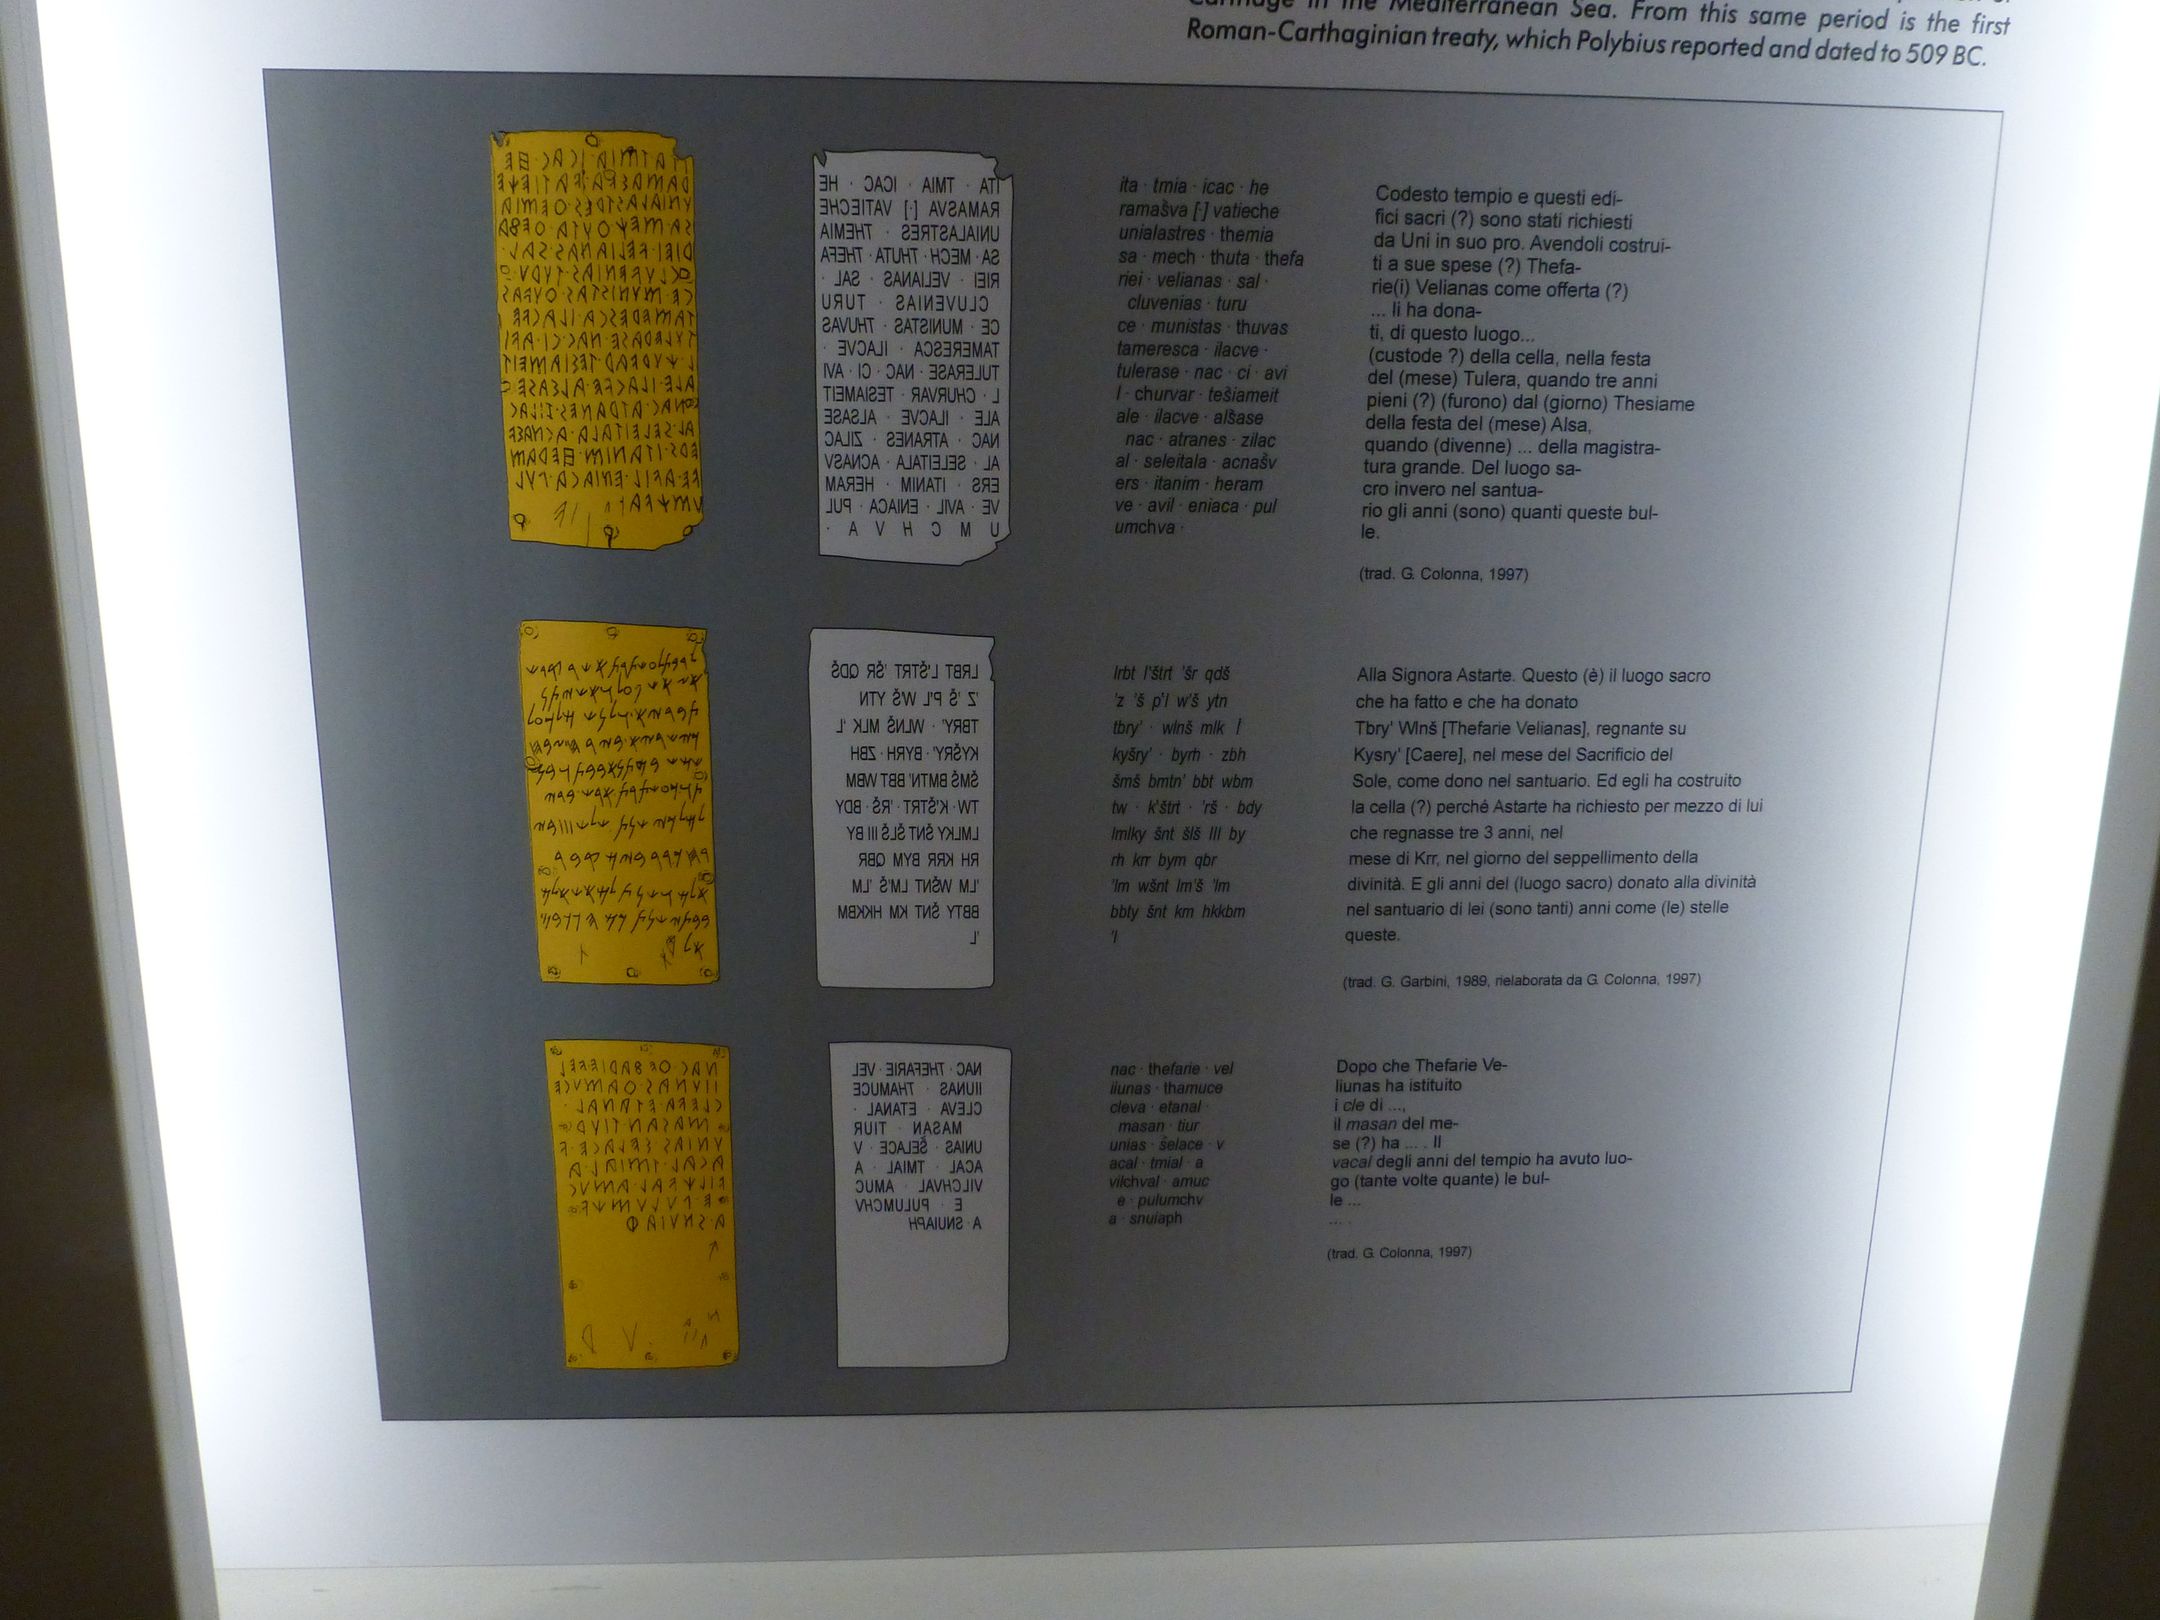 Carthage in the Mediterranean Sea. From this same period is the first
Roman-Carthaginian treaty, which Polybius reported and dated to 509 BC.
ITA · TMIA · ICAC · HE
RAMASVA [·] VATIECHE
UNIALASTRES · THEMIA
SA · MECH · THUTA · THEFA
RIEI · VELIANAS · SAL ·
CLUVENIAS · TURU
CE · MUNISTAS · THUVAS
TAMERESCA · ILACVE ·
TULERASE · NAC · CI · AVI
L · CHURVAR · TESIAMEIT
ALE · ILACVE · ALSASE
NAC · ATRANES · ZILAC
AL · SELEITALA · ACNASV
ERS · ITANIM · HERAM
VE · AVIL · ENIACA · PUL
U M C H V A ·
ita · tmia · icac · he
ramašva [·] vatieche
unialastres · themia
sa · mech · thuta · thefa
riei · velianas · sal ·
cluvenias · turu
ce · munistas · thuvas
tameresca · ilacve ·
tulerase · nac · ci · avi
l · churvar · tešiameit
ale · ilacve · alšase
nac · atranes · zilac
al · seleitala · acnašv
ers · itanim · heram
ve · avil · eniaca · pul
umchva ·
Codesto tempio e questi edi-
fici sacri (?) sono stati richiesti
da Uni in suo pro. Avendoli costrui-
ti a sue spese (?) Thefa-
rie(i) Velianas come offerta (?)
... li ha dona-
ti, di questo luogo...
(custode ?) della cella, nella festa
del (mese) Tulera, quando tre anni
pieni (?) (furono) dal (giorno) Thesiame
della festa del (mese) Alsa,
quando (divenne) ... della magistra-
tura grande. Del luogo sa-
cro invero nel santua-
rio gli anni (sono) quanti queste bul-
le.
(trad. G. Colonna, 1997)
LRBT L'ŠTRT 'ŠR QDŠ
'Z 'Š P'L W'Š YTN
TBRY' · WLNŠ MLK 'L
KYŠRY' · BYRH · ZBH
ŠMŠ BMTN' BBT WBM
TW · K'ŠTRT · 'RŠ · BDY
LMLKY ŠNT ŠLŠ III BY
RH KRR BYM QBR
'LM WŠNT LM'Š 'LM
BBTY ŠNT KM HKKBM
'L
lrbt l'štrt 'šr qdš
'z 'š p'l w'š ytn
tbry' · wlnš mlk l
kyšry' · byrh · zbh
šmš bmtn' bbt wbm
tw · k'štrt · 'rš · bdy
lmlky šnt šlš III by
rh krr bym qbr
'lm wšnt lm'š 'lm
bbty šnt km hkkbm
'l
Alla Signora Astarte. Questo (è) il luogo sacro
che ha fatto e che ha donato
Tbry' Wlnš [Thefarie Velianas], regnante su
Kysry' [Caere], nel mese del Sacrificio del
Sole, come dono nel santuario. Ed egli ha costruito
la cella (?) perché Astarte ha richiesto per mezzo di lui
che regnasse tre 3 anni, nel
mese di Krr, nel giorno del seppellimento della
divinità. E gli anni del (luogo sacro) donato alla divinità
nel santuario di lei (sono tanti) anni come (le) stelle
queste.
(trad. G. Garbini, 1989, rielaborata da G. Colonna, 1997)
NAC · THEFARIE · VEL
IIUNAS · THAMUCE
CLEVA · ETANAL ·
MASAN · TIUR
UNIAS · ŠELACE · V
ACAL · TMIAL · A
VILCHVAL · AMUC
E · PULUMCHV
A · SNUIAPH
nac · thefarie · vel
iiunas · thamuce
cleva · etanal ·
masan · tiur
unias · šelace · v
acal · tmial · a
vilchval · amuc
e · pulumchv
a · snuiaph
Dopo che Thefarie Ve-
liunas ha istituito
i cle di ...,
il masan del me-
se (?) ha ... . Il
vacal degli anni del tempio ha avuto luo-
go (tante volte quante) le bul-
le ...
... .
(trad. G. Colonna, 1997)